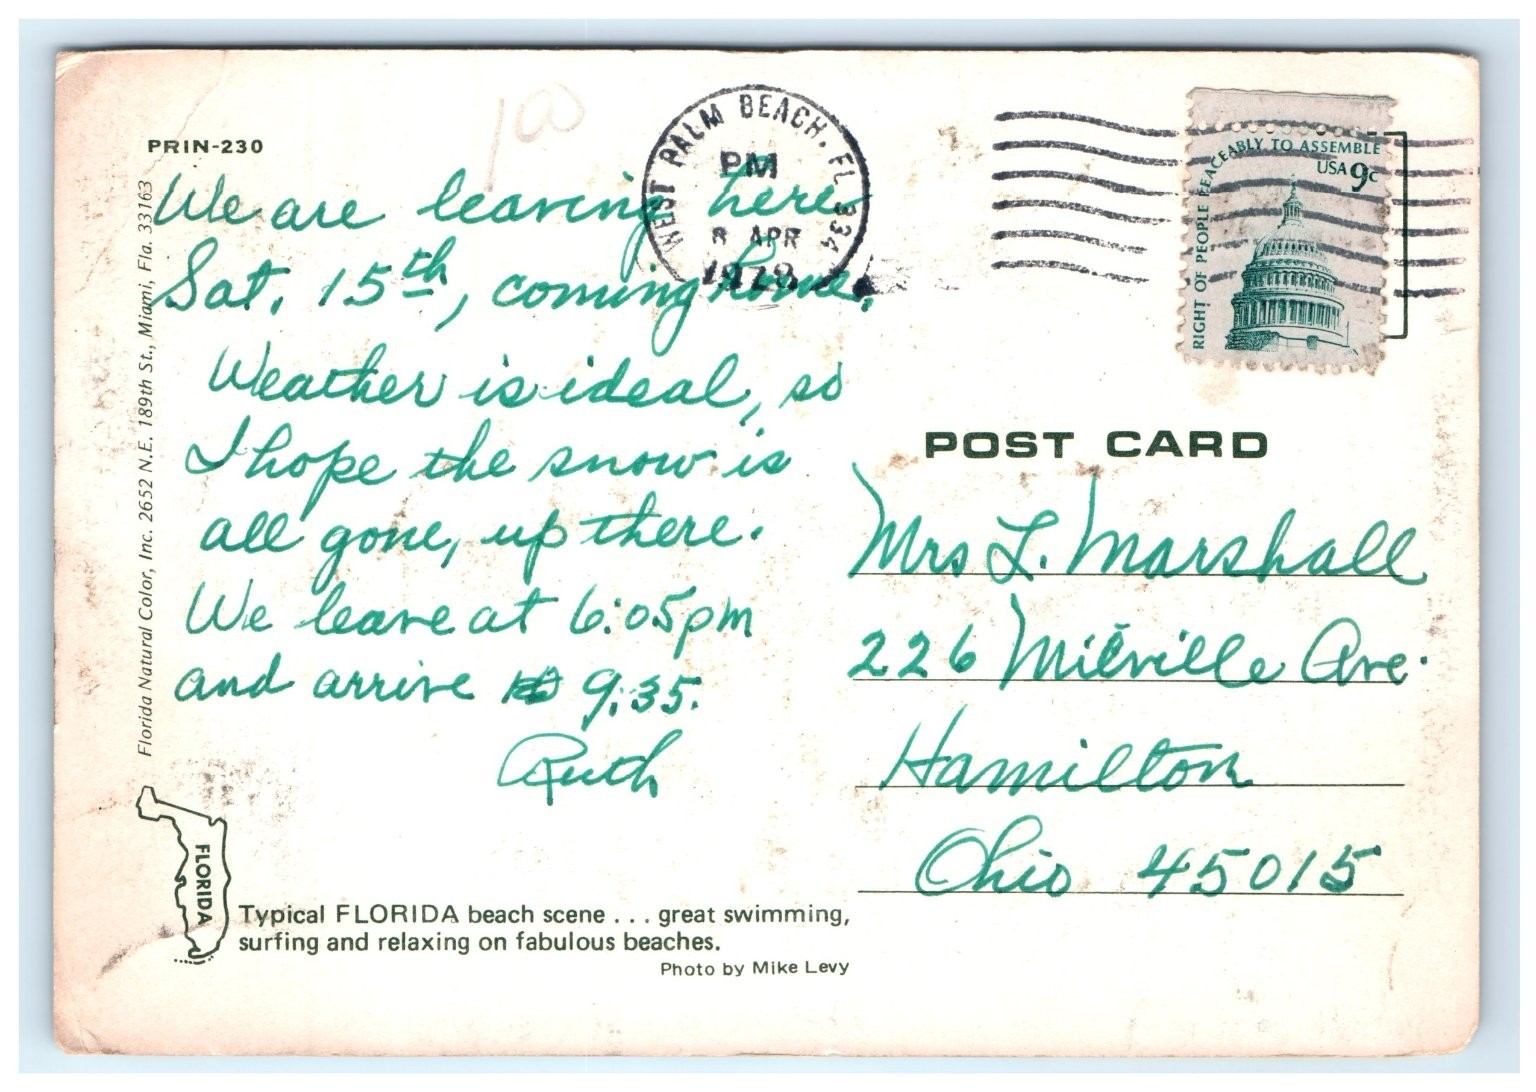 PRIN-230
100
WEST PALM BEACH, FL 334
PM
8 APR
1978
RIGHT OF PEOPLE PEACEABLY TO ASSEMBLE
USA 9c
We are leaving here
Sat. 15th, coming home.
Weather is ideal, so
I hope the snow is
all gone, up there.
We leave at 6:05pm
and arrive 9:35.
Ruth
Florida Natural Color, Inc. 2652 N.E. 189th St., Miami, Fla. 33163
POST CARD
Mrs L. Marshall
226 Milville Ave.
Hamilton
Ohio 45015
FLORIDA
Typical FLORIDA beach scene . . . great swimming,
surfing and relaxing on fabulous beaches.
Photo by Mike Levy